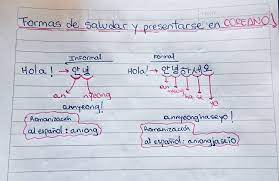 Formas de saludar y presentarse en COREANO
Informal
Hola! → 안녕
an nyeong
annyeong!
Romanización
al español: aniong
Formal
Hola! → 안녕하세요
an nyeong ha se yo
annyeonghaseyo!
Romanización
al español: aniongjaseio